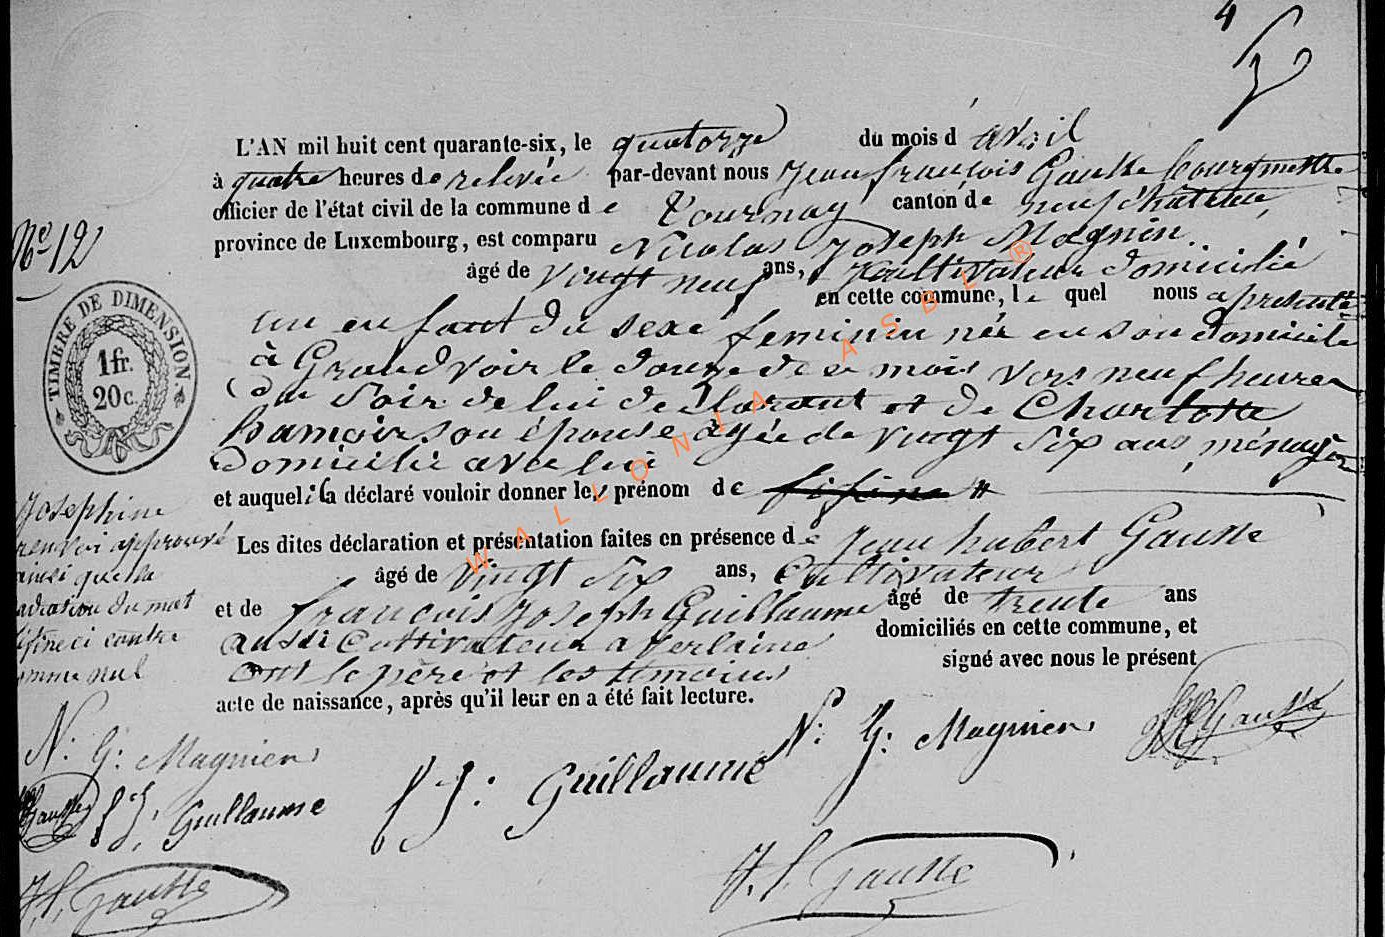 4
L'AN mil huit cent quarante-six, le quatorze du mois d'avril
à quatre heures de relevée par-devant nous Jean françois Gausse bourgmestre
officier de l'état civil de la commune de Tournay canton de neufchateau,
province de Luxembourg, est comparu Nicolas Joseph Magnien
No 12
âgé de vingt neuf ans, cultivateur domicilié
en cette commune, lequel nous a présenté
un enfant du sexe feminin née en son domicile
à Grandvoir le douze de ce mois vers neuf heures
du Soir de lui déclarant et de Charlotte
hamoir son épouse agée de vingt Six ans, ménagère
domicilié avec lui
et auquel il a déclaré vouloir donner les prénom de fifine #
Les dites déclaration et présentation faites en présence de Jean hubert Gausse
âgé de vingt Six ans, Cultivateur
et de françois Joseph Guillaume âgé de trente ans
aussi Cultivateur a Verlaine domiciliés en cette commune, et
ont le père et les temoins signé avec nous le présent
acte de naissance, après qu'il leur en a été fait lecture.
TIMBRE DE DIMENSION
1 fr.
20 c.
Josephine
renvoi approuvé
ainsi que la
radiation du mot
fifine ci contre
comme nul
N. J: Magnien
Gausse f J: Guillaume
J. f. Gausse
f J: Guillaume
N: J: Magnien
JH Gausse
J. f. Gausse
WALLONIA ASBL ®